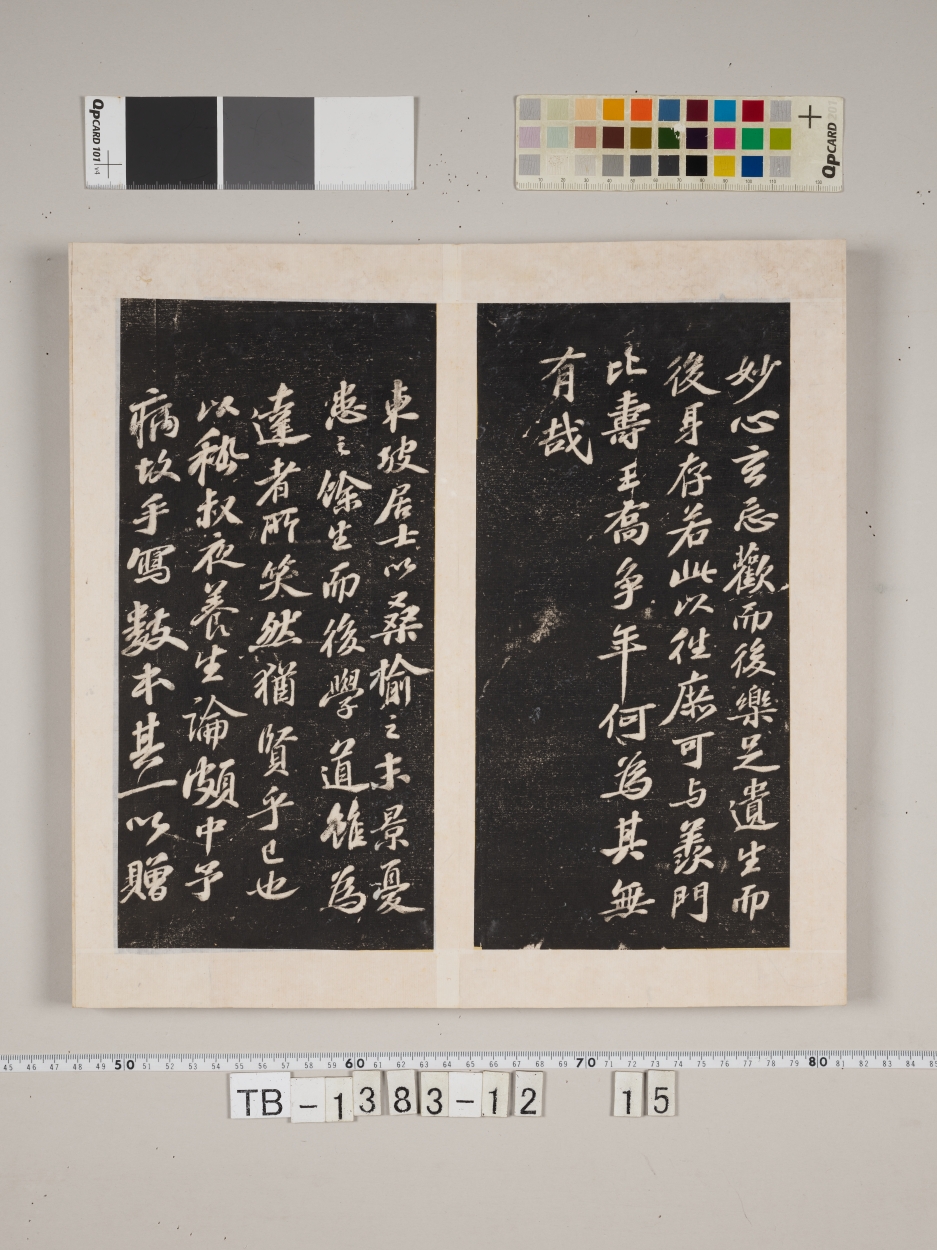 妙心玄忘歡而後樂足遺生而
後身存若此以往庶可与羨門
比壽王喬爭年何為其無
有哉
東坡居士以桑榆之末景憂
患之餘生而後學道雖為
達者所笑然猶賢乎已也
以嵇叔夜養生論頗中予
病故手寫數本其一以贈
QPCARD 101 v4
QPCARD 201
10 20 30 40 50 60 70 80 90 100 110 100
45 46 47 48 49 50 51 52 53 54 55 56 57 58 59 60 61 62 63 64 65 66 67 68 69 70 71 72 73 74 75 76 77 78 79 80 81 82 83 84 85
TB-1383-12 15